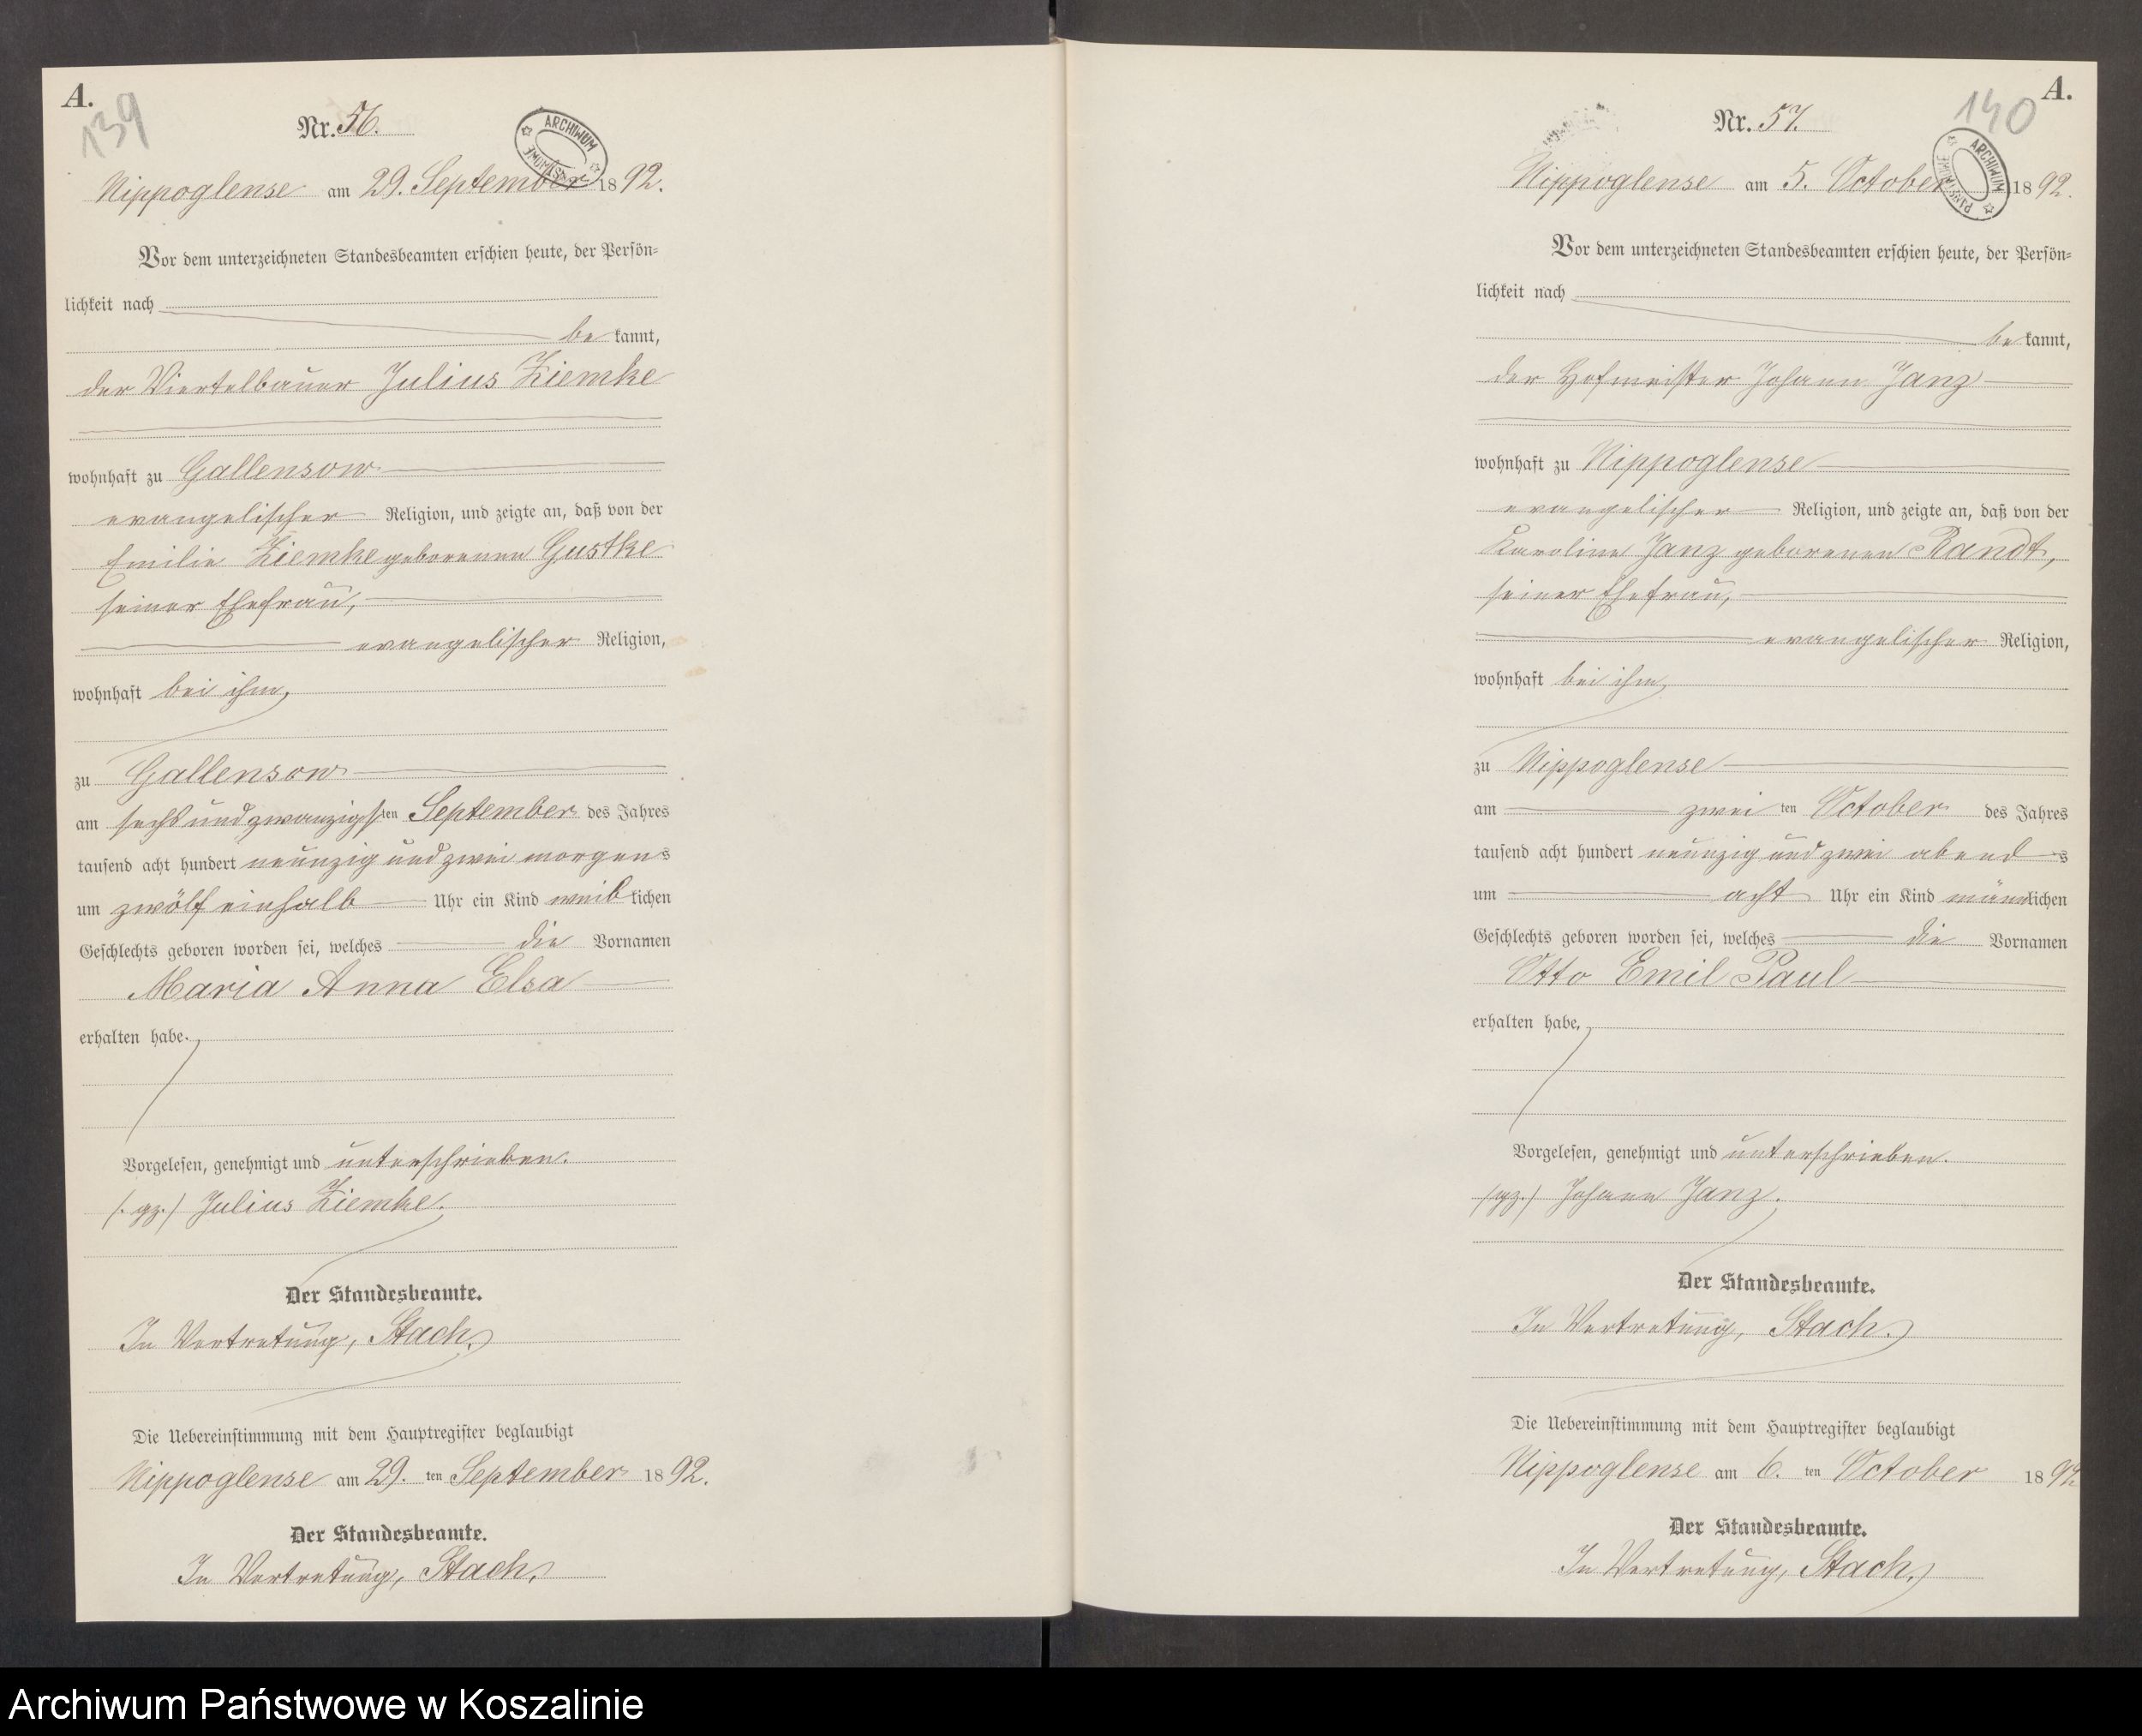 A.
139
Nr. 56.
ARCHIWUM PAŃSTWOWE
Nippoglense am 29. September 1892.
Vor dem unterzeichneten Standesbeamten erschien heute, der Persön-
lichkeit nach
be kannt,
der Viertelbauer Julius Ziemke
wohnhaft zu Gallensow
evangelischer Religion, und zeigte an, daß von der
Emilie Ziemke geborenen Gustke
seiner Ehefrau,
evangelischer Religion,
wohnhaft bei ihm,
zu Gallensow
am sechs und zwanzigsten September des Jahres
tausend acht hundert neunzig und zwei morgens
um zwölf einhalb Uhr ein Kind weiblichen
Geschlechts geboren worden sei, welches die Vornamen
Maria Anna Elsa
erhalten habe.
Vorgelesen, genehmigt und unterschrieben.
(. gz.) Julius Ziemke.
Der Standesbeamte.
In Vertretung, Stach.
Die Uebereinstimmung mit dem Hauptregister beglaubigt
Nippoglense am 29. ten September 1892.
Der Standesbeamte.
In Vertretung, Stach.
A.
140
Nr. 57.
ARCHIWUM PAŃSTWOWE
Nippoglense am 5. October 1892.
Vor dem unterzeichneten Standesbeamten erschien heute, der Persön-
lichkeit nach
be kannt,
der Hofmeister Johann Janz
wohnhaft zu Nippoglense
evangelischer Religion, und zeigte an, daß von der
Karoline Janz geborenen Randt,
seiner Ehefrau,
evangelischer Religion,
wohnhaft bei ihm,
zu Nippoglense
am zwei ten October des Jahres
tausend acht hundert neunzig und zwei abend s
um acht Uhr ein Kind männlichen
Geschlechts geboren worden sei, welches die Vornamen
Otto Emil Paul
erhalten habe.
Vorgelesen, genehmigt und unterschrieben.
(gz.) Johann Janz.
Der Standesbeamte.
In Vertretung, Stach.
Die Uebereinstimmung mit dem Hauptregister beglaubigt
Nippoglense am 6. ten October 1892
Der Standesbeamte.
In Vertretung, Stach.
Archiwum Państwowe w Koszalinie